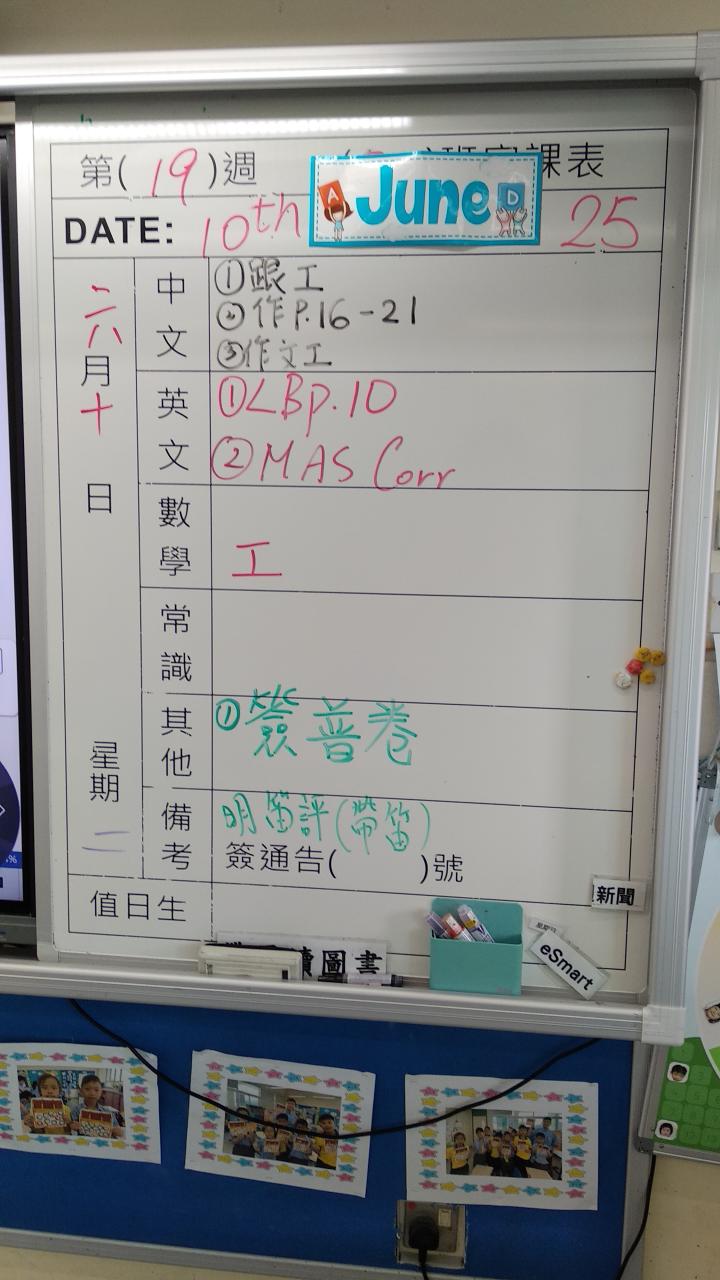 第(19)週 課表
DATE: 10th June 25
A D
二
六
月
十
日
星期二
中文
①跟工
②作P.16-21
③作文工
英文
①LBp.10
②MAS Corr
數學
工
常識
其他
①簽普卷
備考
明笛評(帶笛)
簽通告( )號
值日生
新聞
讀圖書
eSmart